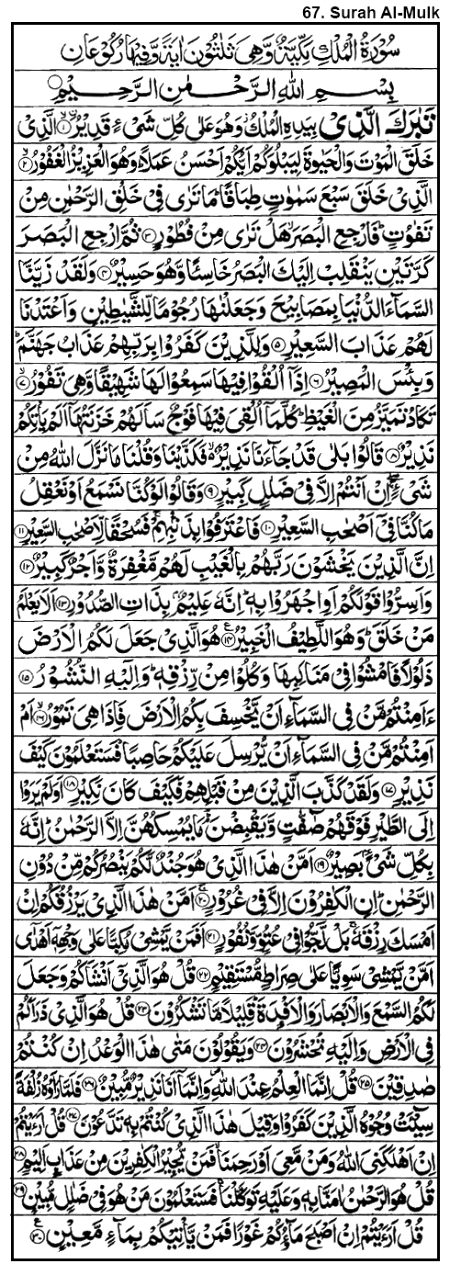 67. Surah Al-Mulk
سُوْرَةُ الْمُلْكِ مَكِّيَّةٌ وَّهِيَ ثَلٰثُوْنَ اٰيَةً وَّفِيْهَا رُكُوْعَانِ
بِسْمِ اللّٰهِ الرَّحْمٰنِ الرَّحِيْمِ
تَبٰرَكَ الَّذِيْ بِيَدِهِ الْمُلْكُ وَهُوَ عَلٰى كُلِّ شَيْءٍ قَدِيْرُ ۙ﴿۱﴾ الَّذِيْ
خَلَقَ الْمَوْتَ وَالْحَيٰوةَ لِيَبْلُوَكُمْ اَيُّكُمْ اَحْسَنُ عَمَلًا ؕ وَهُوَ الْعَزِيْزُ الْغَفُوْرُ ۙ﴿۲﴾
الَّذِيْ خَلَقَ سَبْعَ سَمٰوٰتٍ طِبَاقًا ؕ مَا تَرٰى فِيْ خَلْقِ الرَّحْمٰنِ مِنْ
تَفٰوُتٍ ؕ فَارْجِعِ الْبَصَرَ ۙ هَلْ تَرٰى مِنْ فُطُوْرٍ ﴿۳﴾ ثُمَّ ارْجِعِ الْبَصَرَ
كَرَّتَيْنِ يَنْقَلِبْ اِلَيْكَ الْبَصَرُ خَاسِئًا وَّهُوَ حَسِيْرٌ ﴿۴﴾ وَلَقَدْ زَيَّنَّا
السَّمَآءَ الدُّنْيَا بِمَصَابِيْحَ وَجَعَلْنٰهَا رُجُوْمًا لِّلشَّيٰطِيْنِ وَاَعْتَدْنَا
لَهُمْ عَذَابَ السَّعِيْرِ ﴿۵﴾ وَلِلَّذِيْنَ كَفَرُوْا بِرَبِّهِمْ عَذَابُ جَهَنَّمَ ؕ
وَبِئْسَ الْمَصِيْرُ ﴿۶﴾ اِذَاۤ اُلْقُوْا فِيْهَا سَمِعُوْا لَهَا شَهِيْقًا وَّهِيَ تَفُوْرُ ۙ﴿۷﴾
تَكَادُ تَمَيَّزُ مِنَ الْغَيْظِ ؕ كُلَّمَاۤ اُلْقِيَ فِيْهَا فَوْجٌ سَاَلَهُمْ خَزَنَتُهَاۤ اَلَمْ يَاْتِكُمْ
نَذِيْرٌ ﴿۸﴾ قَالُوْا بَلٰى قَدْ جَآءَنَا نَذِيْرٌ ۙ فَكَذَّبْنَا وَقُلْنَا مَا نَزَّلَ اللّٰهُ مِنْ
شَيْءٍ ۖۚ اِنْ اَنْتُمْ اِلَّا فِيْ ضَلٰلٍ كَبِيْرٍ ﴿۹﴾ وَقَالُوْا لَوْ كُنَّا نَسْمَعُ اَوْ نَعْقِلُ
مَا كُنَّا فِيْۤ اَصْحٰبِ السَّعِيْرِ ﴿۱۰﴾ فَاعْتَرَفُوْا بِذَنْۢبِهِمْ ۚ فَسُحْقًا لِّاَصْحٰبِ السَّعِيْرِ ﴿۱۱﴾
اِنَّ الَّذِيْنَ يَخْشَوْنَ رَبَّهُمْ بِالْغَيْبِ لَهُمْ مَّغْفِرَةٌ وَّاَجْرٌ كَبِيْرٌ ﴿۱۲﴾
وَاَسِرُّوْا قَوْلَكُمْ اَوِ اجْهَرُوْا بِهٖ ؕ اِنَّهٗ عَلِيْمٌۢ بِذَاتِ الصُّدُوْرِ ﴿۱۳﴾ اَلَا يَعْلَمُ
مَنْ خَلَقَ ؕ وَهُوَ اللَّطِيْفُ الْخَبِيْرُ ﴿۱۴﴾ هُوَ الَّذِيْ جَعَلَ لَكُمُ الْاَرْضَ
ذَلُوْلًا فَامْشُوْا فِيْ مَنَاكِبِهَا وَكُلُوْا مِنْ رِّزْقِهٖ ؕ وَاِلَيْهِ النُّشُوْرُ ﴿۱۵﴾
ءَاَمِنْتُمْ مَّنْ فِي السَّمَآءِ اَنْ يَّخْسِفَ بِكُمُ الْاَرْضَ فَاِذَا هِيَ تَمُوْرُ ۙ﴿۱۶﴾ اَمْ
اَمِنْتُمْ مَّنْ فِي السَّمَآءِ اَنْ يُّرْسِلَ عَلَيْكُمْ حَاصِبًا ؕ فَسَتَعْلَمُوْنَ كَيْفَ
نَذِيْرِ ﴿۱۷﴾ وَلَقَدْ كَذَّبَ الَّذِيْنَ مِنْ قَبْلِهِمْ فَكَيْفَ كَانَ نَكِيْرِ ﴿۱۸﴾ اَوَلَمْ يَرَوْا
اِلَى الطَّيْرِ فَوْقَهُمْ صٰٓفّٰتٍ وَّيَقْبِضْنَ ۘؔ مَا يُمْسِكُهُنَّ اِلَّا الرَّحْمٰنُ ؕ اِنَّهٗ
بِكُلِّ شَيْءٍۢ بَصِيْرٌ ﴿۱۹﴾ اَمَّنْ هٰذَا الَّذِيْ هُوَ جُنْدٌ لَّكُمْ يَنْصُرُكُمْ مِّنْ دُوْنِ
الرَّحْمٰنِ ؕ اِنِ الْكٰفِرُوْنَ اِلَّا فِيْ غُرُوْرٍ ۚ﴿۲۰﴾ اَمَّنْ هٰذَا الَّذِيْ يَرْزُقُكُمْ اِنْ
اَمْسَكَ رِزْقَهٗ ۚ بَلْ لَّجُّوْا فِيْ عُتُوٍّ وَّنُفُوْرٍ ﴿۲۱﴾ اَفَمَنْ يَّمْشِيْ مُكِبًّا عَلٰى وَجْهِهٖۤ اَهْدٰۤى
اَمَّنْ يَّمْشِيْ سَوِيًّا عَلٰى صِرَاطٍ مُّسْتَقِيْمٍ ﴿۲۲﴾ قُلْ هُوَ الَّذِيْۤ اَنْشَاَكُمْ وَجَعَلَ
لَكُمُ السَّمْعَ وَالْاَبْصَارَ وَالْاَفْـِٕدَةَ ؕ قَلِيْلًا مَّا تَشْكُرُوْنَ ﴿۲۳﴾ قُلْ هُوَ الَّذِيْ ذَرَاَكُمْ
فِي الْاَرْضِ وَاِلَيْهِ تُحْشَرُوْنَ ﴿۲۴﴾ وَيَقُوْلُوْنَ مَتٰى هٰذَا الْوَعْدُ اِنْ كُنْتُمْ
صٰدِقِيْنَ ﴿۲۵﴾ قُلْ اِنَّمَا الْعِلْمُ عِنْدَ اللّٰهِ ۪ وَاِنَّمَاۤ اَنَا نَذِيْرٌ مُّبِيْنٌ ﴿۲۶﴾ فَلَمَّا رَاَوْهُ زُلْفَةً
سِيْٓـَٔتْ وُجُوْهُ الَّذِيْنَ كَفَرُوْا وَقِيْلَ هٰذَا الَّذِيْ كُنْتُمْ بِهٖ تَدَّعُوْنَ ﴿۲۷﴾ قُلْ اَرَءَيْتُمْ
اِنْ اَهْلَكَنِيَ اللّٰهُ وَمَنْ مَّعِيَ اَوْ رَحِمَنَا ۙ فَمَنْ يُّجِيْرُ الْكٰفِرِيْنَ مِنْ عَذَابٍ اَلِيْمٍ ﴿۲۸﴾
قُلْ هُوَ الرَّحْمٰنُ اٰمَنَّا بِهٖ وَعَلَيْهِ تَوَكَّلْنَا ۚ فَسَتَعْلَمُوْنَ مَنْ هُوَ فِيْ ضَلٰلٍ مُّبِيْنٍ ﴿۲۹﴾
قُلْ اَرَءَيْتُمْ اِنْ اَصْبَحَ مَآؤُكُمْ غَوْرًا فَمَنْ يَّاْتِيْكُمْ بِمَآءٍ مَّعِيْنٍ ﴿۳۰﴾